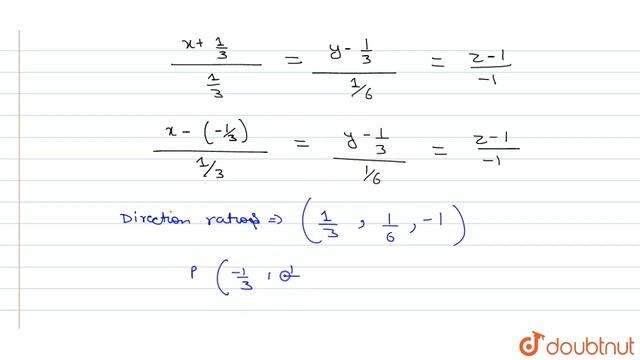 (x + 1/3)/(1/3) = (y - 1/3)/(1/6) = (z - 1)/(-1)
(x - (-1/3))/(1/3) = (y - 1/3)/(1/6) = (z - 1)/(-1)
Direction ratios ⇒ (1/3, 1/6, -1)
P (-1/3,
doubtnut